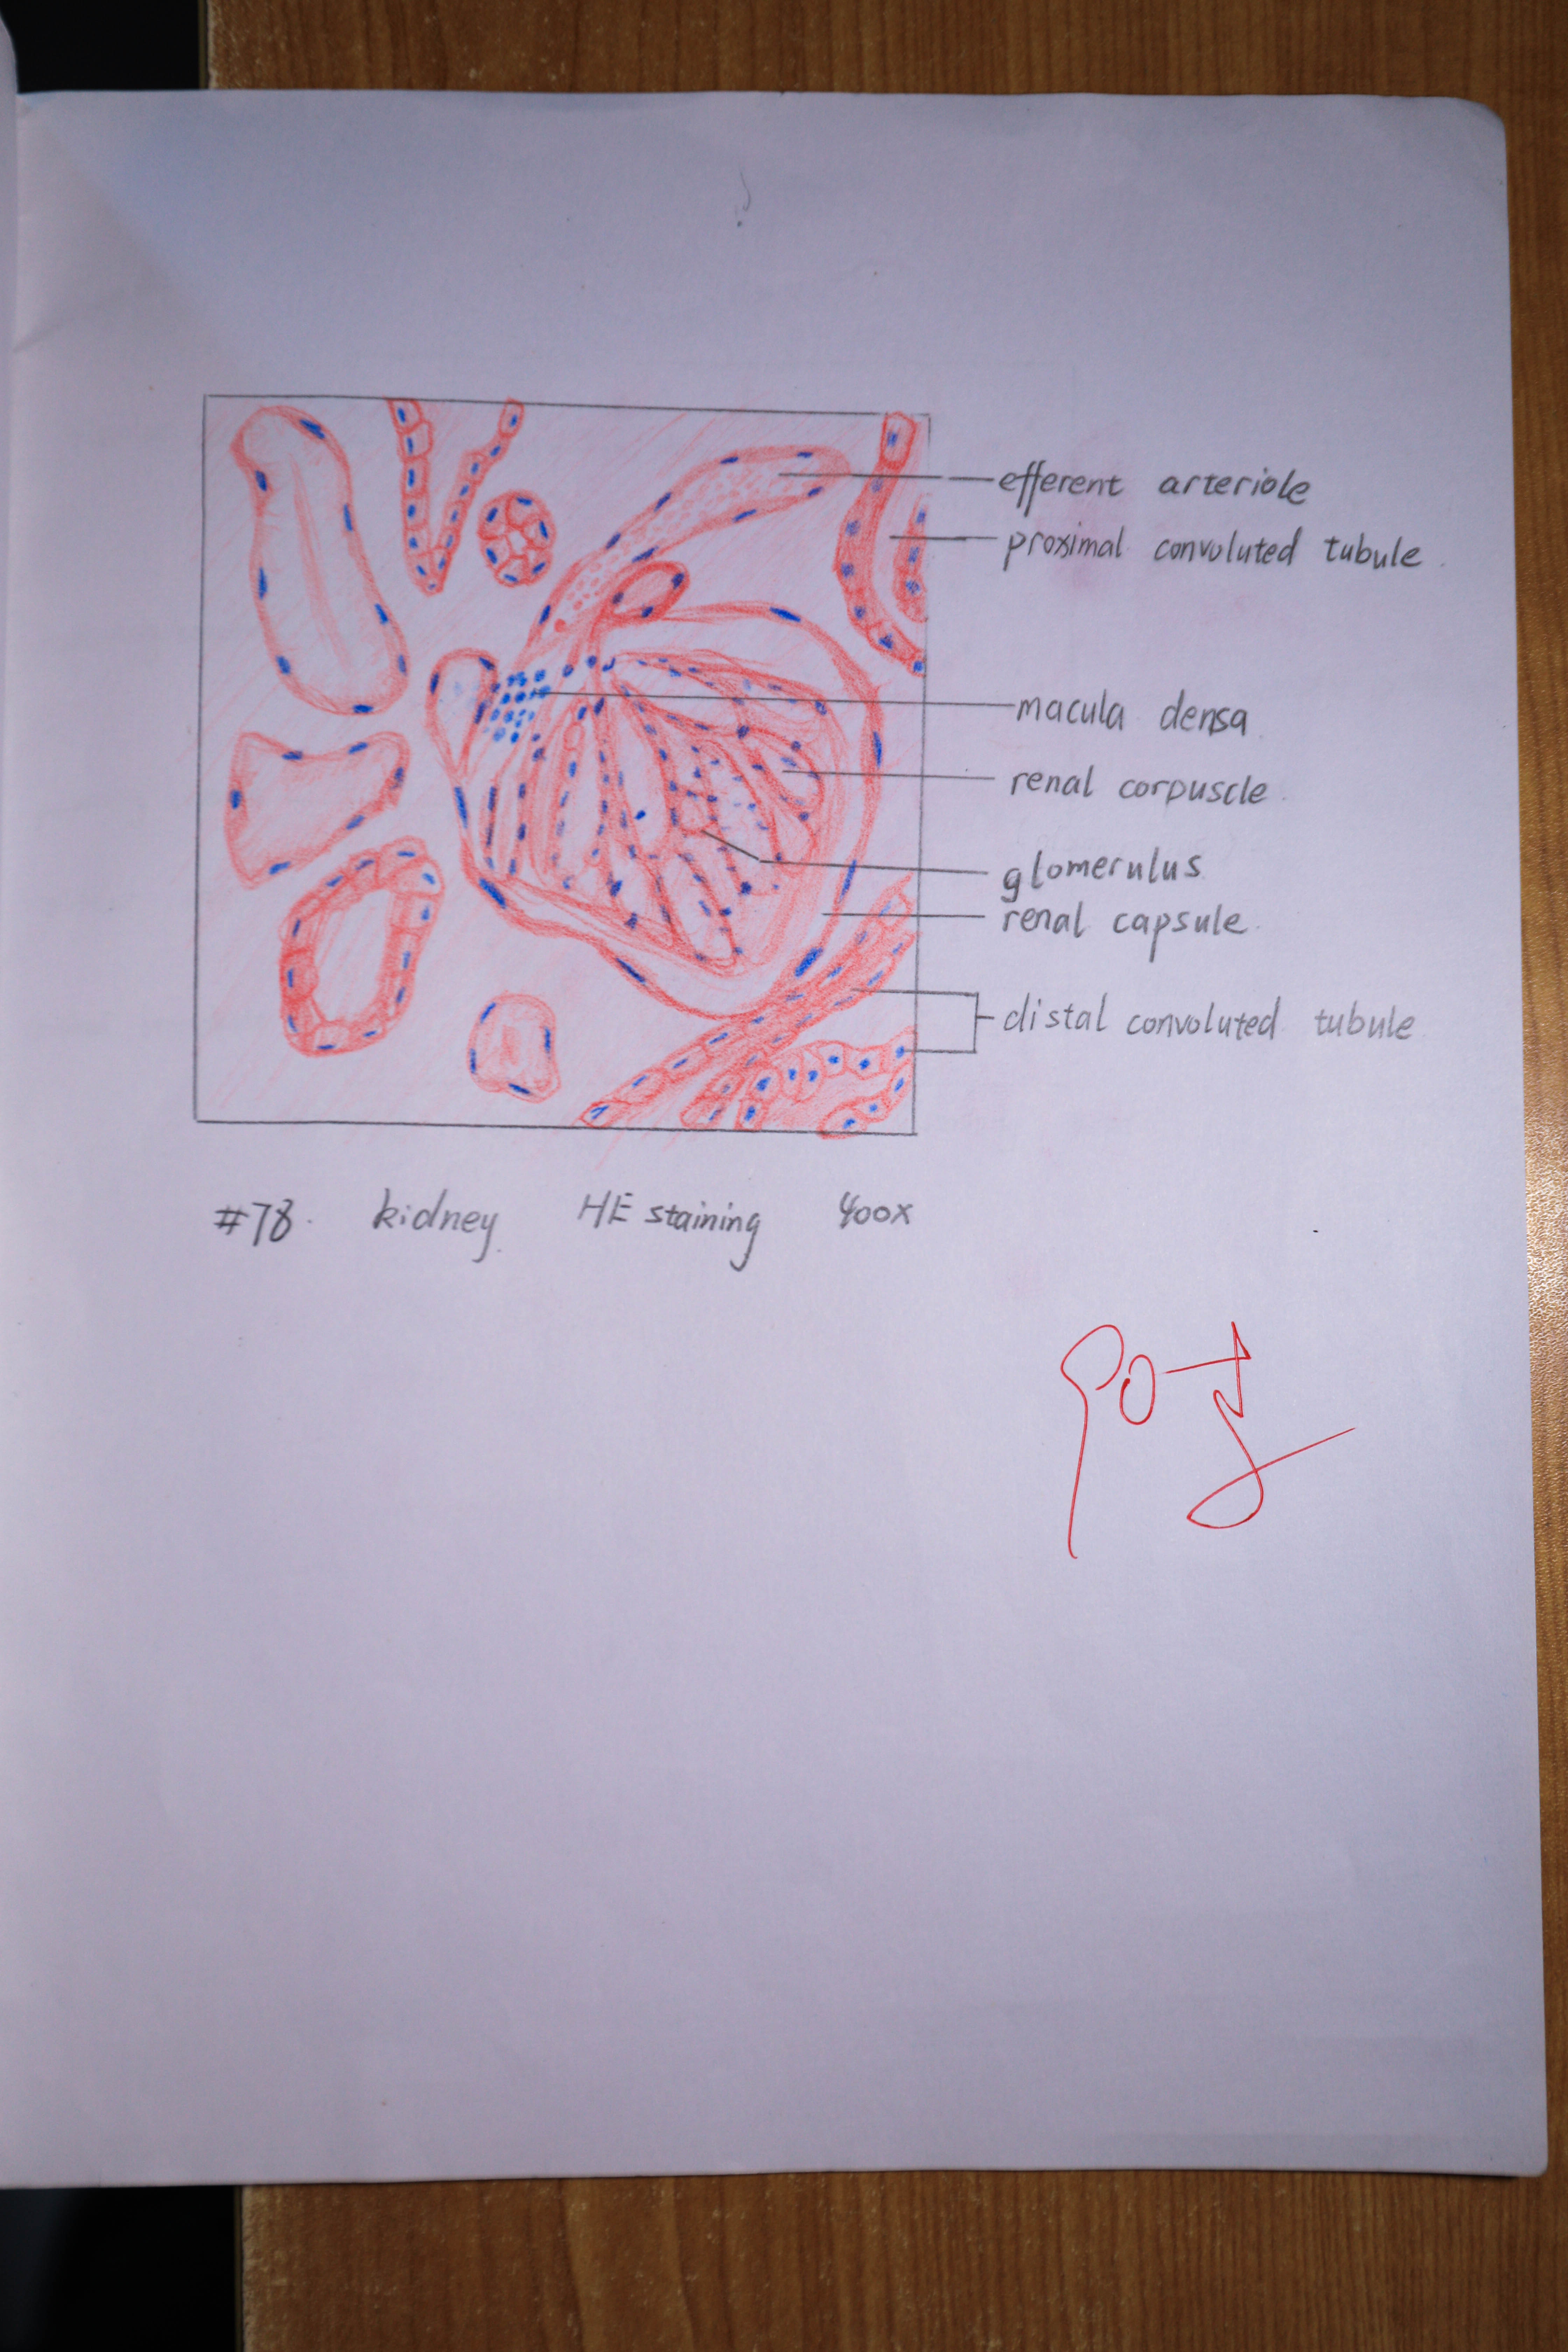 efferent arteriole
proximal convoluted tubule
macula densa
renal corpuscle
glomerulus
renal capsule
distal convoluted tubule
#78. kidney HE staining 400x
90+